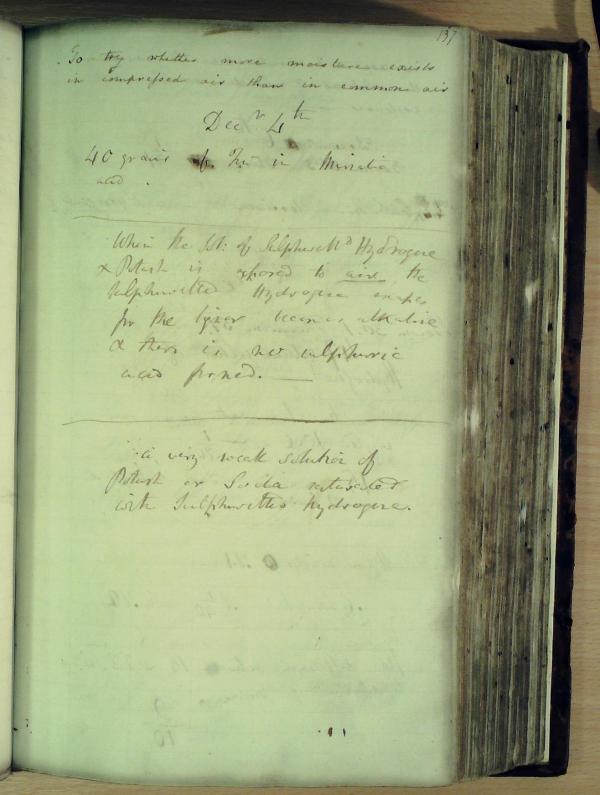 137
To try whether more moisture exists
in compressed air than in common air
Decr 4th
40 grains of in Muriatic
acid.
When the Sol: of Sulphurettd Hydrogene
& Potash is exposed to air the
Sulphuretted Hydrogene escapes
for the liquor becomes alkaline
& there is no sulphuric
acid formed. —
a very weak solution of
Potash or Soda saturated
with Sulphuretted hydrogene.